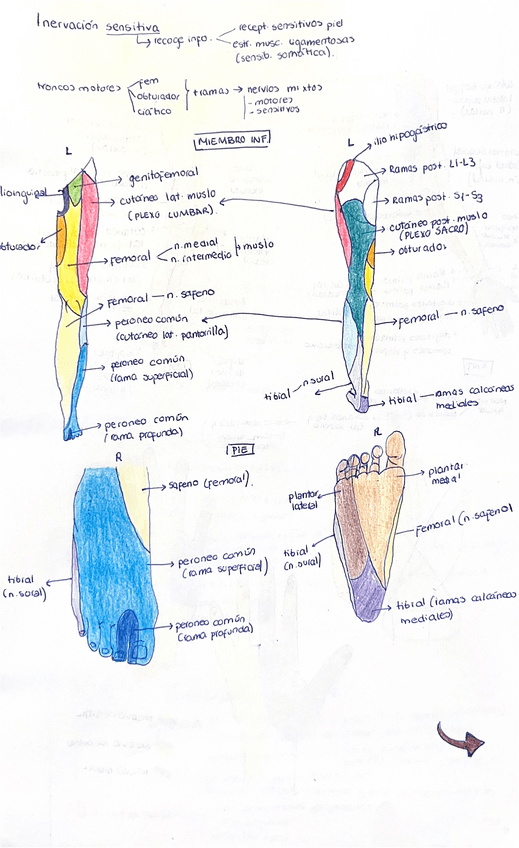 Inervación sensitiva
recoge info.
recept. sensitivos piel
estr. musc. ligamentosas
(sensib. somática).
troncos motores
fem
obturador
ciático
ramas → nervios mixtos
- motores
- sensitivos
MIEMBRO INF
L
ilioinguinal
obturador
genitofemoral
cutáneo lat. muslo
(PLEXO LUMBAR).
femoral
n. medial
n. intermedio
muslo
Femoral — n. safeno
peroneo común
(cutáneo lat. pantorilla)
peroneo común
(rama superficial)
peroneo común
(rama profunda)
L
ilio hipogástrico
Ramas post. L1-L3
Ramas post. S1-S3
cutáneo post. muslo
(PLEXO SACRO)
obturador
femoral — n. safeno
tibial n. sural
tibial — ramas calcáneas
mediales
PIE
R
safeno (femoral).
peroneo común
(rama superficial)
peroneo común
(rama profunda)
tibial
(n. sural)
R
plantar
medial
plantar
lateral
Femoral (n. safeno)
tibial
(n. sural)
tibial (ramas calcáneas
mediales)